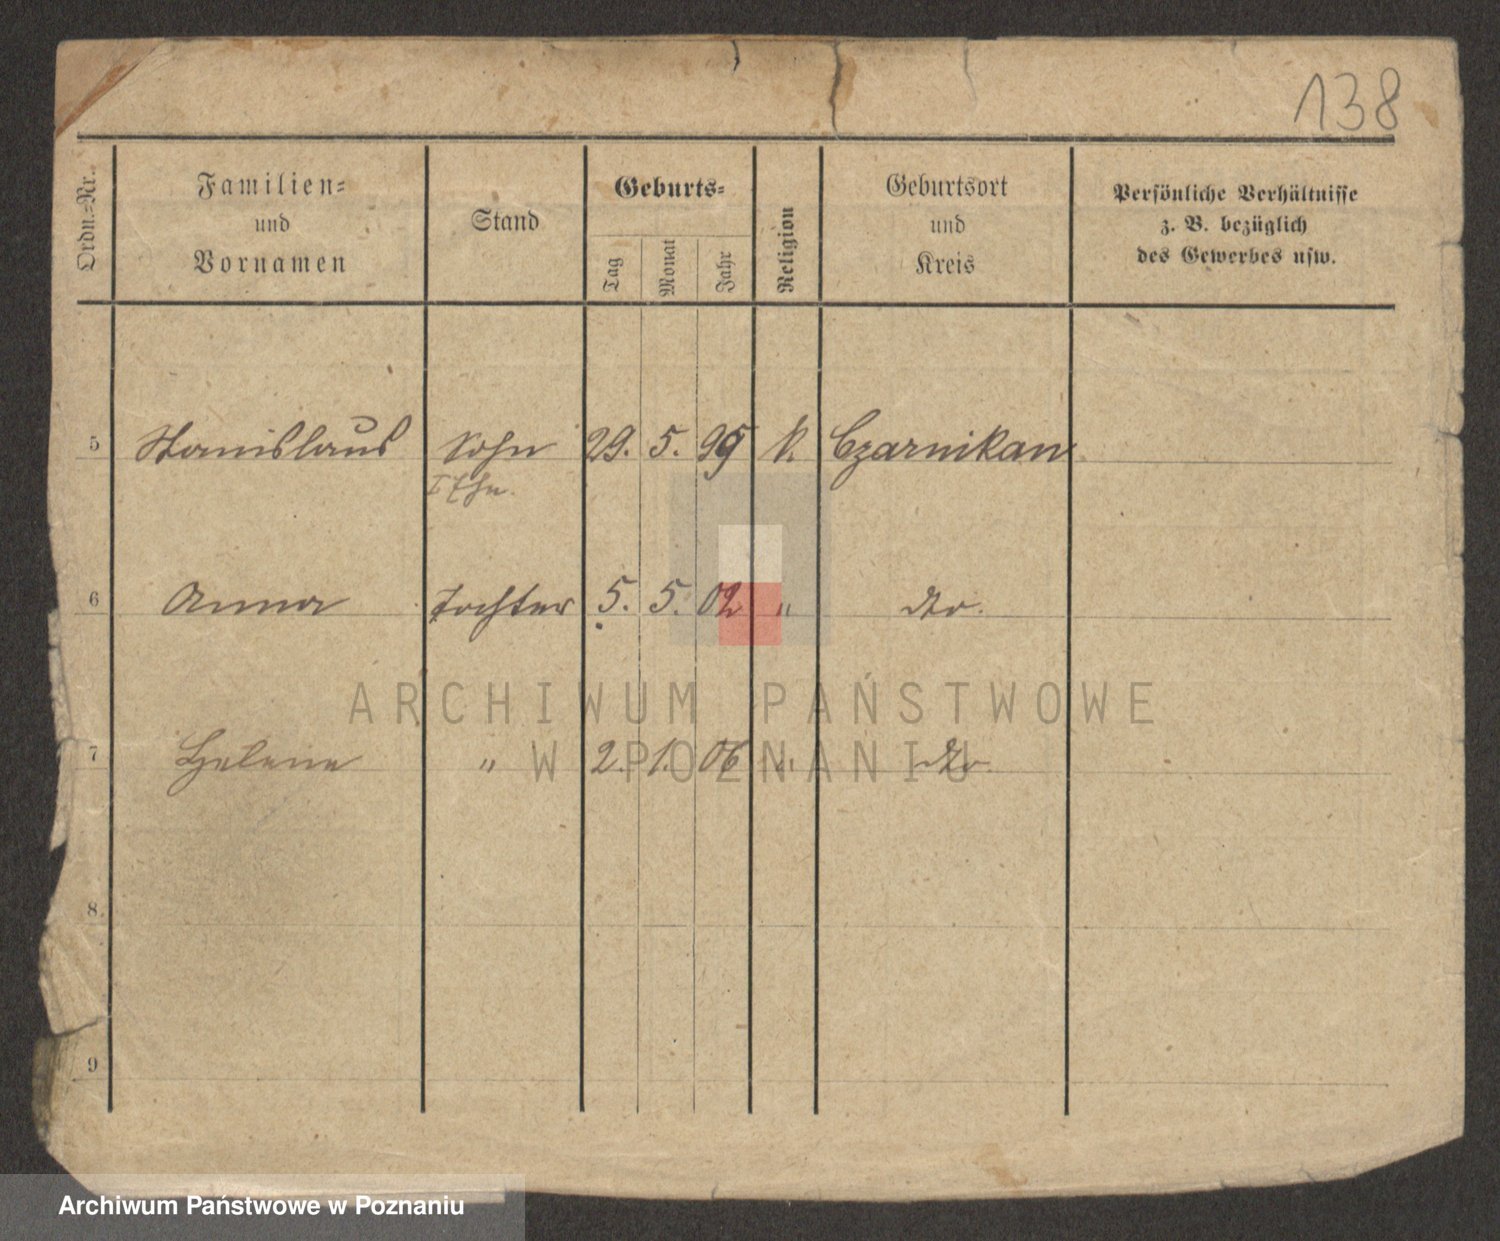 138
Ordn.-Nr.
Familien-
und
Vornamen
Stand
Geburts-
Tag
Monat
Jahr
Religion
Geburtsort
und
Kreis
Persönliche Verhältnisse
z. B. bezüglich
des Gewerbes usw.
5 Stanislaus Sohn 29. 5. 99 k. Czarnikau
6 Anna Tochter 5. 5. 02 " dto.
7 Helene " 2. 1. 06 " dto.
8
9
ARCHIWUM PAŃSTWOWE
W POZNANIU
Archiwum Państwowe w Poznaniu